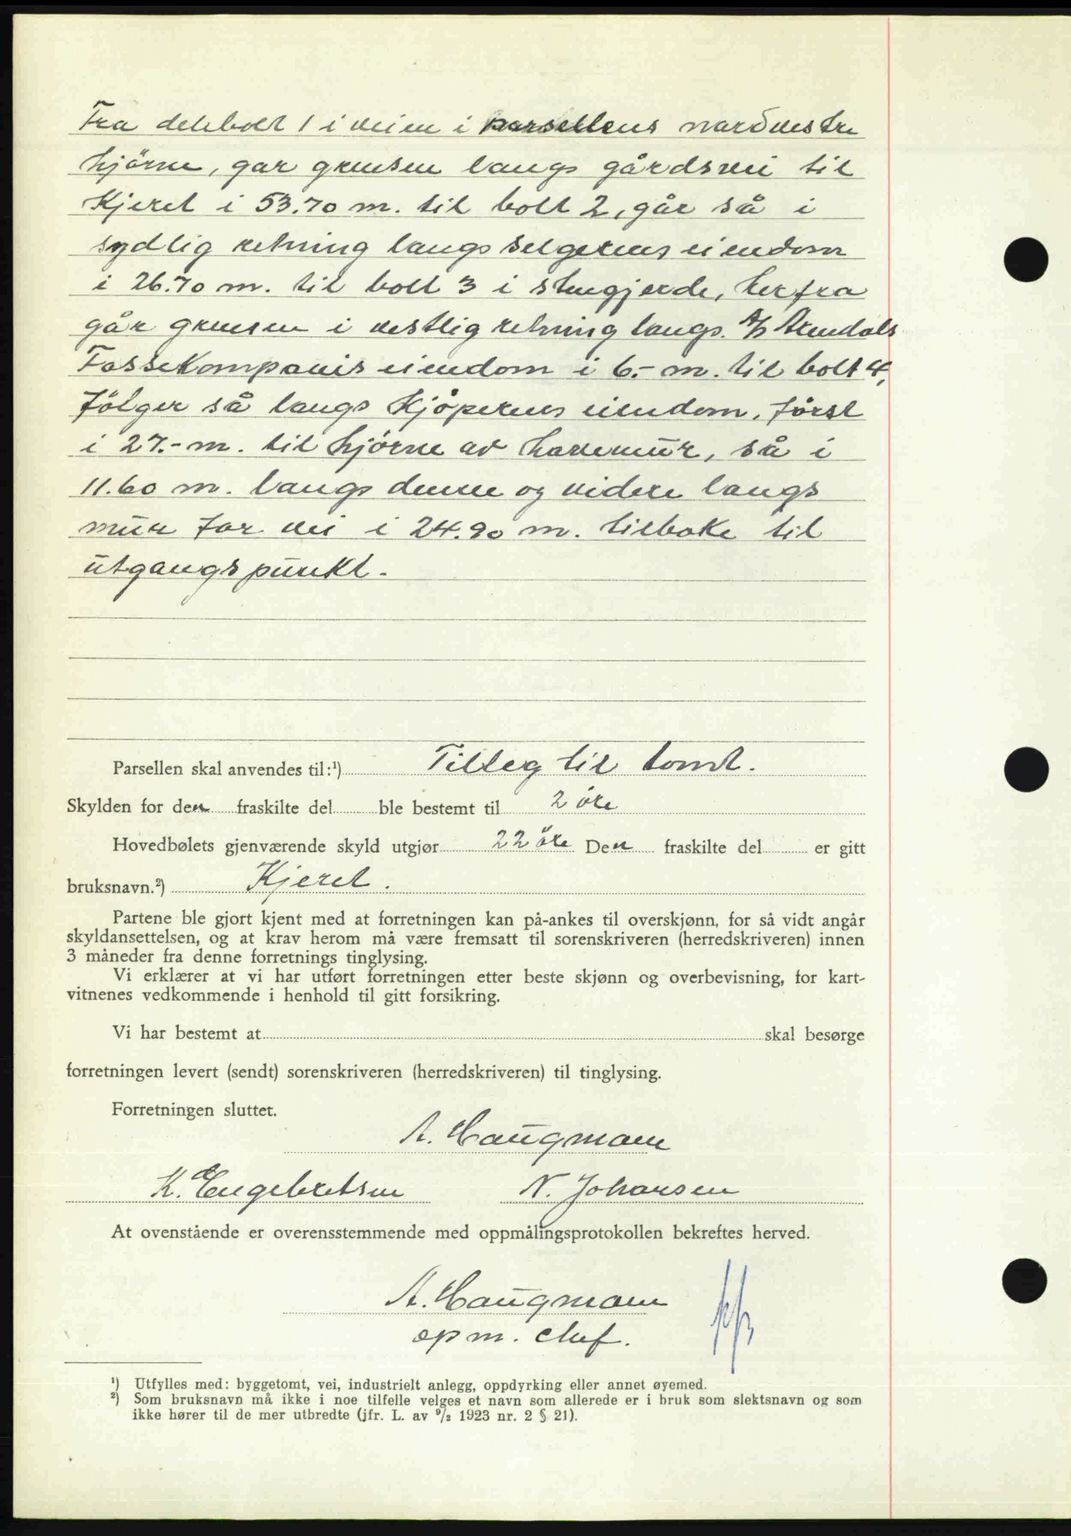 Fra delebolt 1 i veien i parsellens nordvestre
hjörne, går grensen langs gårdsvei til
Kjeret i 53.70 m. til bolt 2, går så i
sydlig retning langs selgerens eiendom
i 26.70 m. til bolt 3 i stengjerde, herfra
går grensen i vestlig retning langs. A/S Arendals
Fossekompanis eiendom i 6.- m. til bolt 4,
følger så langs Kjøperens eiendom, først
i 27.- m. til hjörne av havemur, så i
11.60 m. langs denne og videre langs
mur for vei i 24.90 m. tilbake til
utgangspunkt.
Parsellen skal anvendes til:¹) Tilleg til tomt.
Skylden for den fraskilte del ble bestemt til 2 öre
Hovedbølets gjenværende skyld utgjør 22 öre Den fraskilte del er gitt
bruksnavn.²) Kjeret.
Partene ble gjort kjent med at forretningen kan på-ankes til overskjønn, for så vidt angår
skyldansettelsen, og at krav herom må være fremsatt til sorenskriveren (herredskriveren) innen
3 måneder fra denne forretnings tinglysing.
Vi erklærer at vi har utført forretningen etter beste skjønn og overbevisning, for kart-
vitnenes vedkommende i henhold til gitt forsikring.
Vi har bestemt at skal besørge
forretningen levert (sendt) sorenskriveren (herredskriveren) til tinglysing.
Forretningen sluttet.
A. Haugmoen
K. Engebretsen N. Johansen
At ovenstående er overensstemmende med oppmålingsprotokollen bekreftes herved.
A. Haugmoen
opm. chef.
¹) Utfylles med: byggetomt, vei, industrielt anlegg, oppdyrking eller annet øyemed.
²) Som bruksnavn må ikke i noe tilfelle velges et navn som allerede er i bruk som slektsnavn og som
ikke hører til de mer utbredte (jfr. L. av ⁹/₂ 1923 nr. 2 § 21).